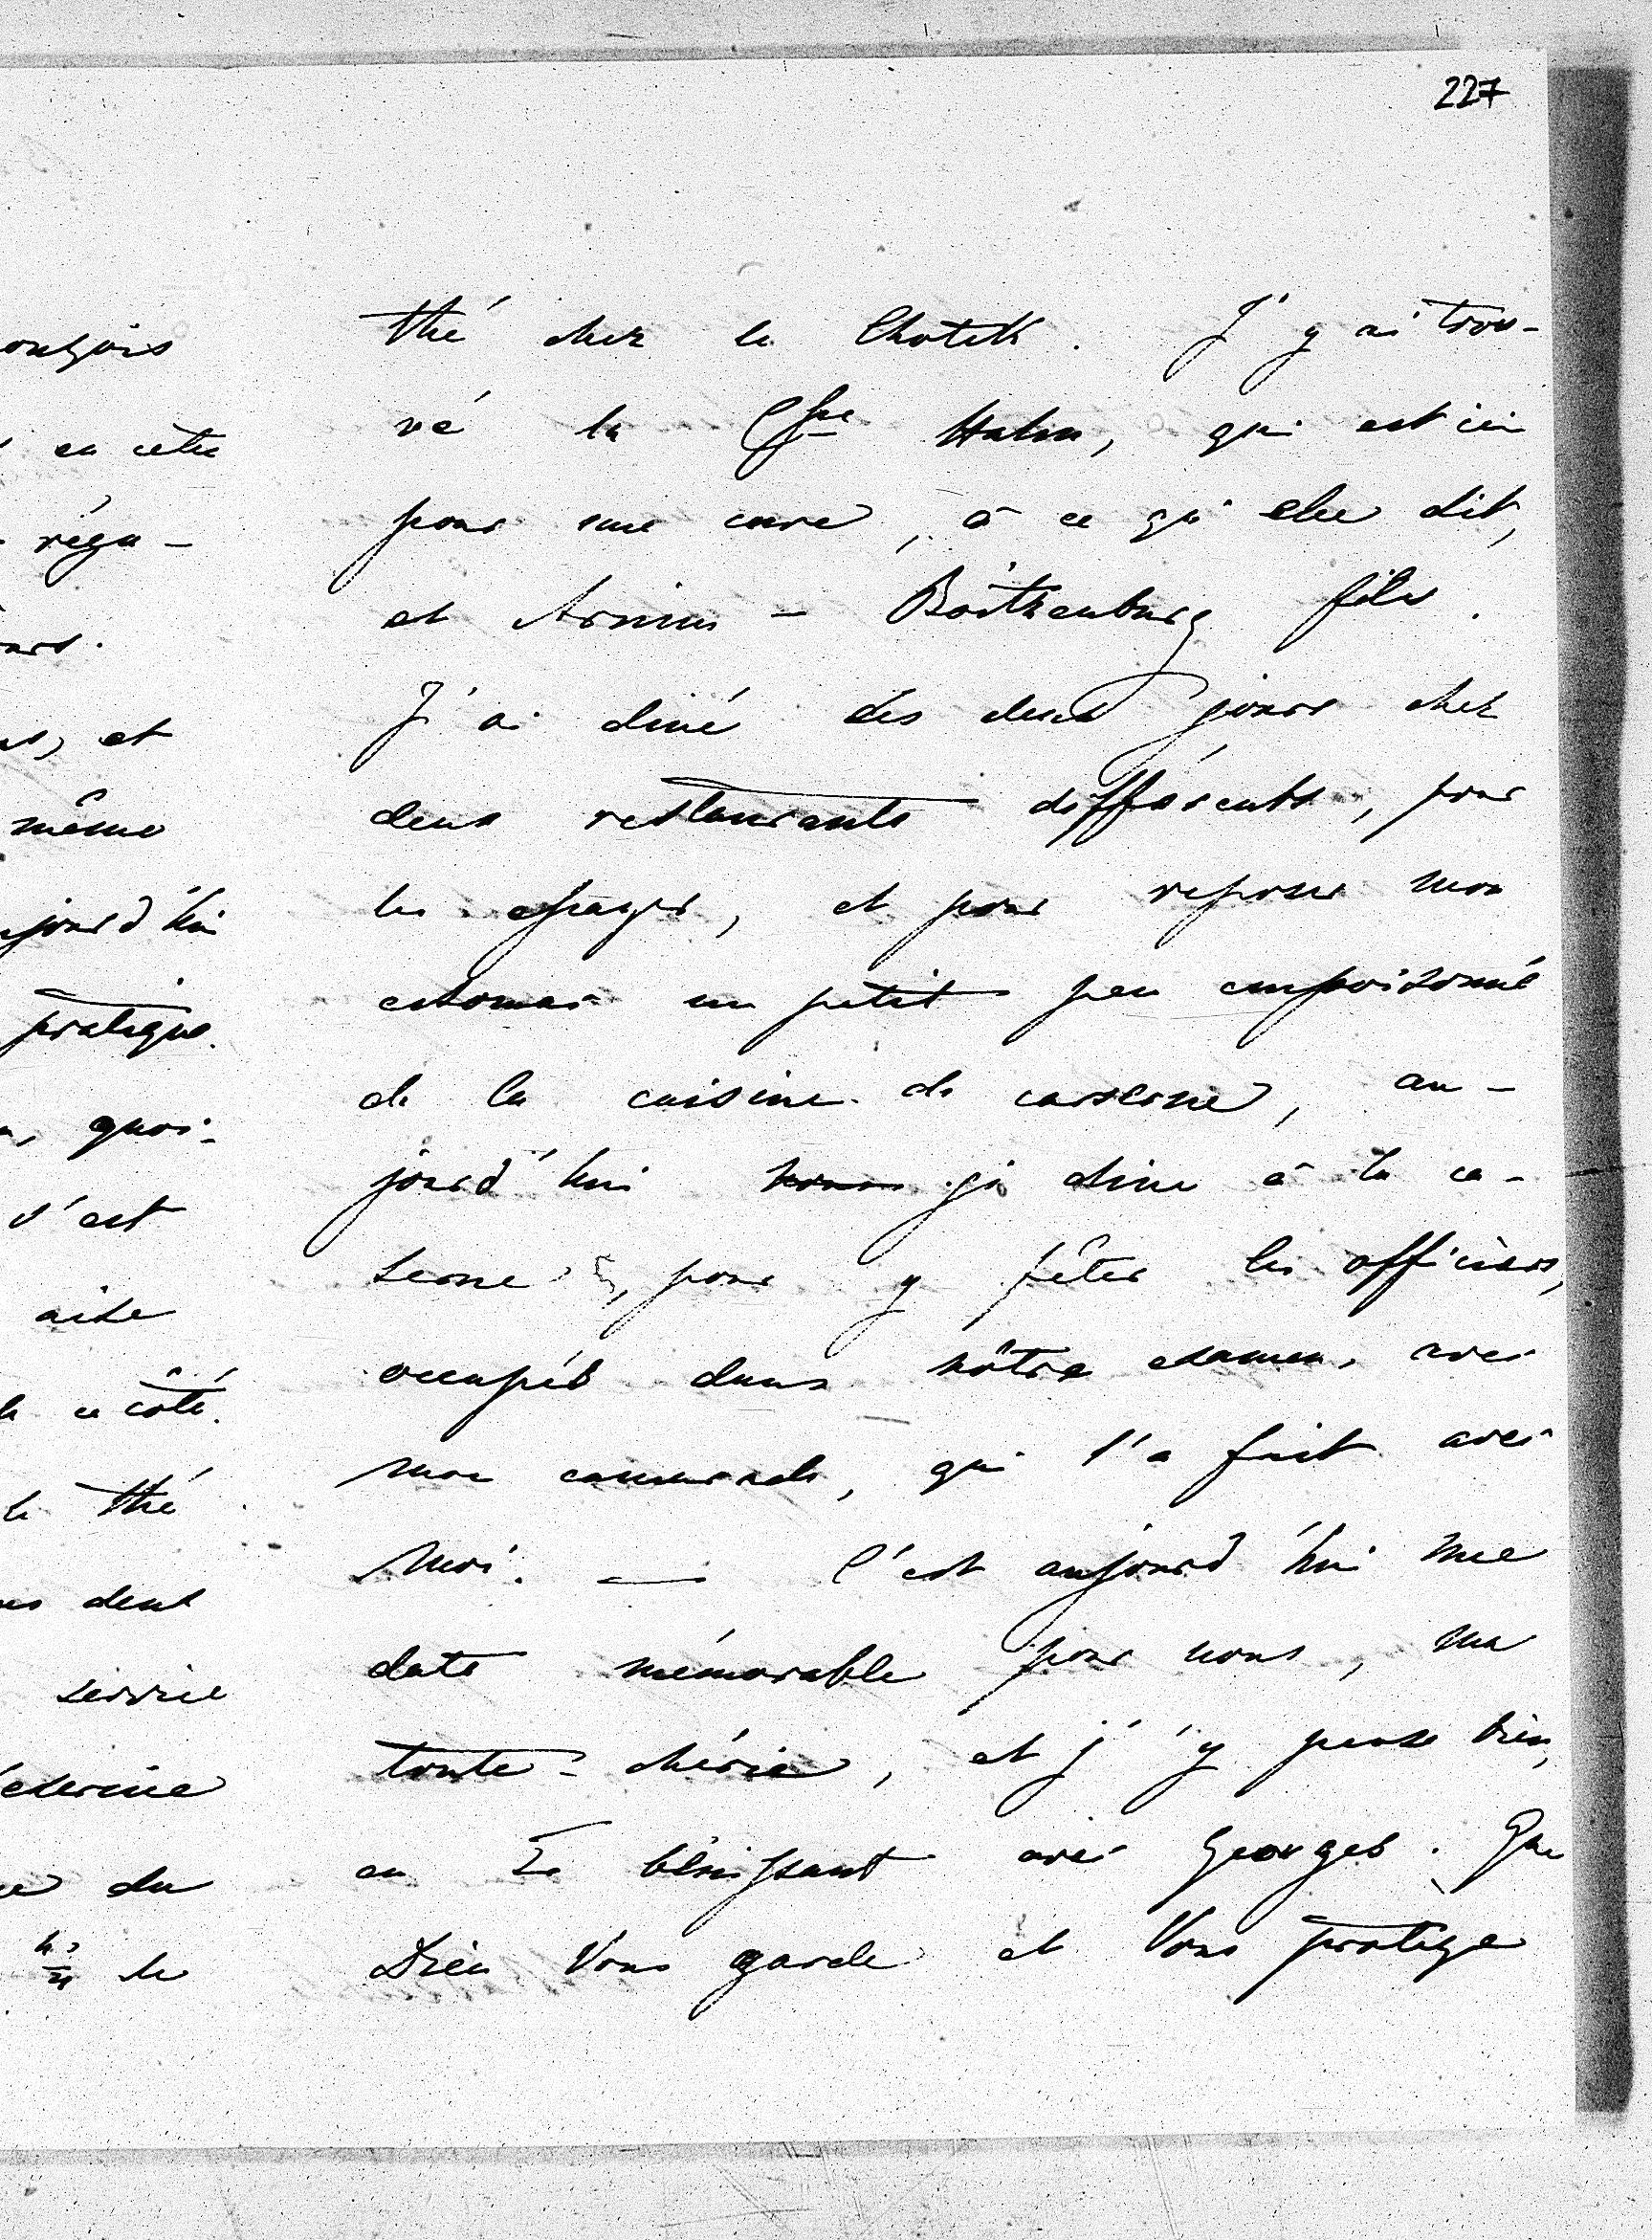 227
thé chez la Chotek. J'y ai trou-
vé la Csse Hahn, qui est ici
pour une cure, à ce qu'elle dit,
et Arnim-Boitzenburg fils.
J'ai diné les deux jours chez
deux restaurants différents, pour
les essayer, et pour reposer mon
estomac un petit peu empoisonné
de la cuisine de caserne, au-
jourd'hui je dine à la ca-
serne, pour y fêter les officiers,
occupés dans nôtre examen, avec
mon camarade, qui l'a fait avec
moi. — C'est aujourd'hui une
date mémorable pour nous, ma
toute-chérie, et j'y pense bien,
en Te bénissant avec Georges. Que
Dieu Vous garde et Vous protège
en cette
régu-
et
même
pratique.
quoi-
s'est
aise
ce côté.
le thé
deux
service
du
le